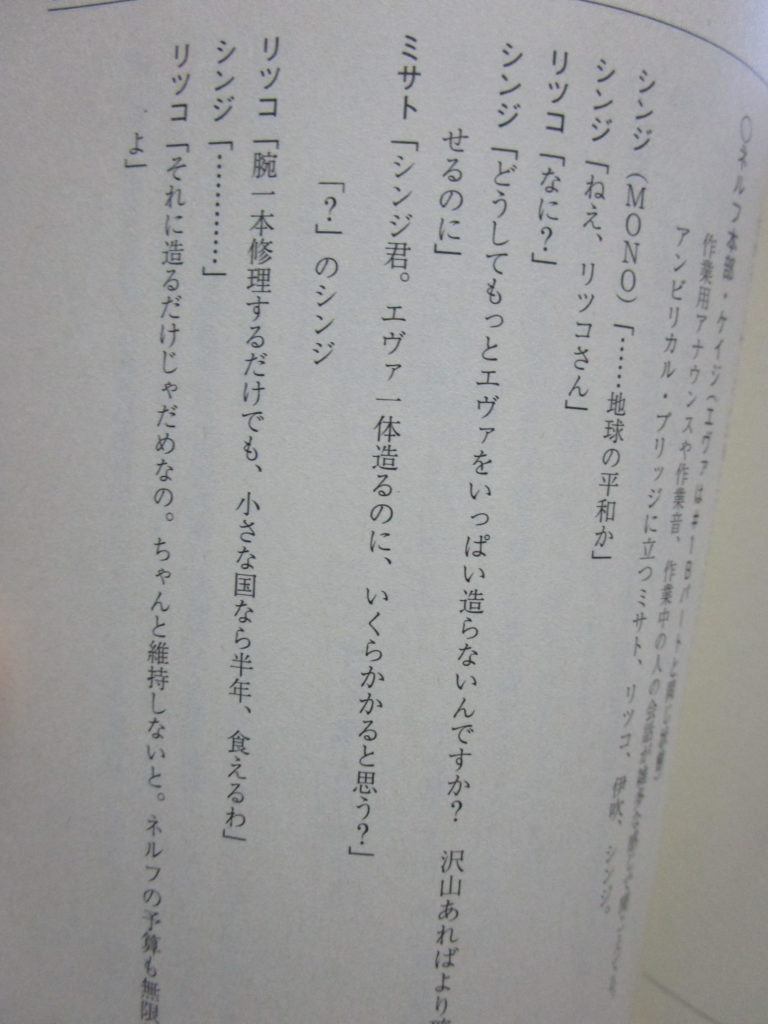 ○ネルフ本部・ケイジ(エヴァは#1Bパートと同じ
作業用アナウンスや作業音、作業中の人の会話が
アンビリカル・ブリッジに立つミサト、リツコ、伊吹、シンジ。
シンジ(MONO)「……地球の平和か」
シンジ「ねえ、リツコさん」
リツコ「なに?」
シンジ「どうしてもっとエヴァをいっぱい造らないんですか? 沢山あればより
せるのに」
ミサト「シンジ君。エヴァ一体造るのに、いくらかかると思う?」
「?」のシンジ
リツコ「腕一本修理するだけでも、小さな国なら半年、食えるわ」
シンジ「…………」
リツコ「それに造るだけじゃだめなの。ちゃんと維持しないと。ネルフの予算も無限、
よ」